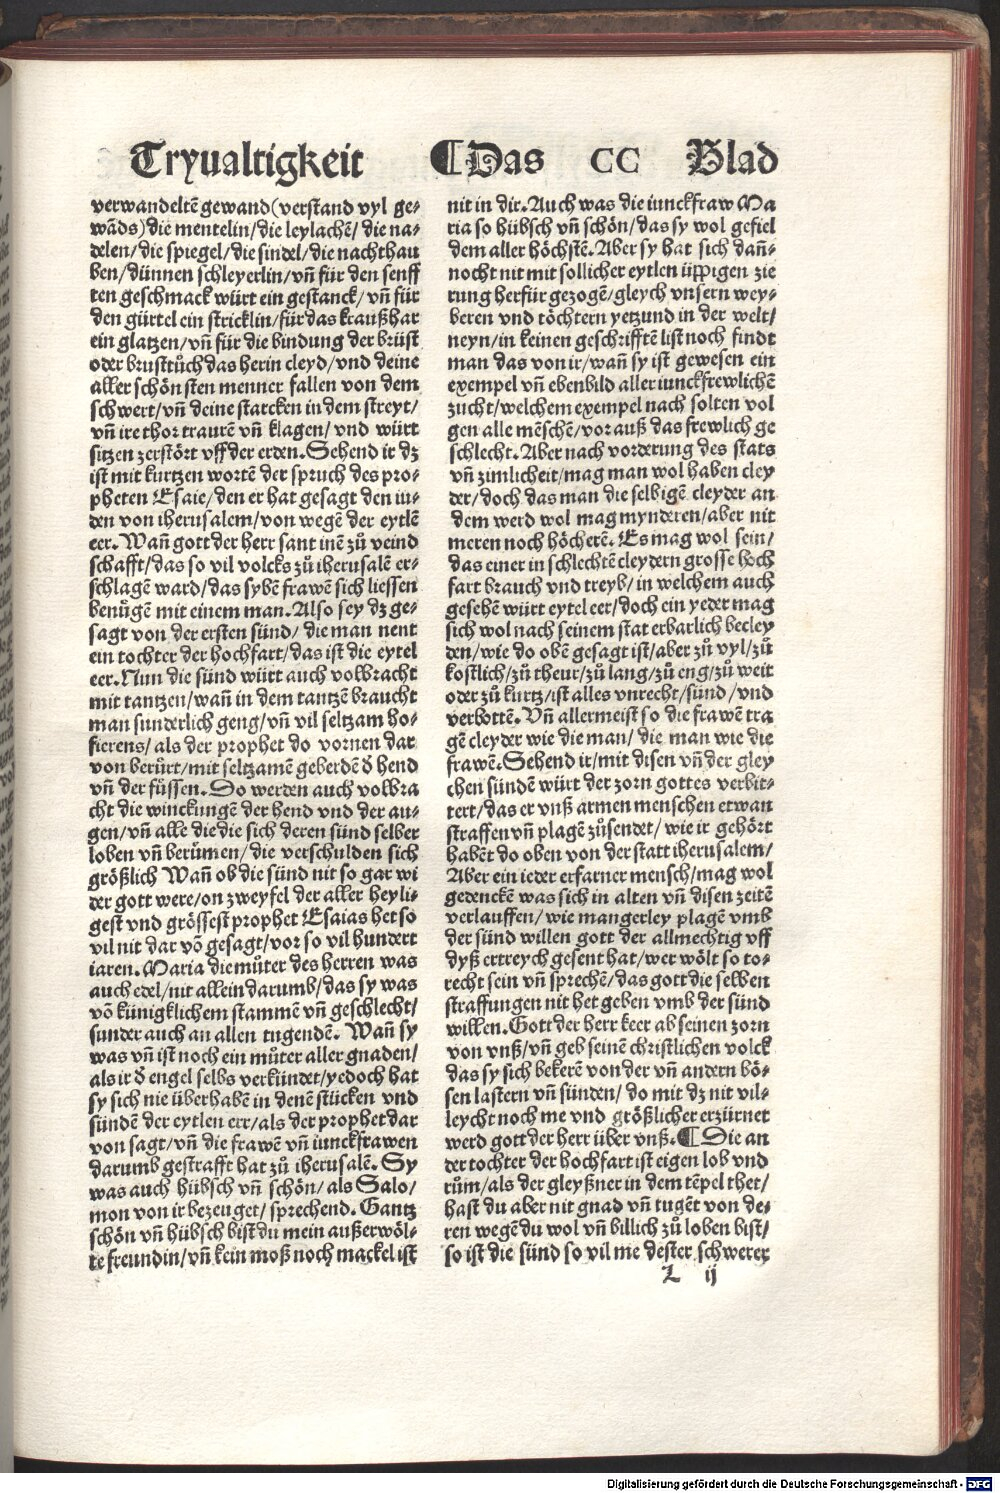 Tryualtigkeit ¶Das CC Blad
verwandeltē gewand(verstand vyl ge⸗
wāds)die mentelin/die leylachē/ die na⸗
delen/die spiegel/die sindel/die nachthau
ben/dünnen schleyerlin/vn̄ für den senff
ten geschmack würt ein gestanck/vn̄ für
den gürtel ein stricklin/für das kraußhar
ein glatzen/vn̄ für die bindung der brüst
oder brusttůch das herin cleyd/vnd deine
aller schönsten menner fallen von dem
schwert/vn̄ deine starcken in dem streyt/
vn̄ ire thor traurē vn̄ klagen/ vnd würt
sitzen zerstört vff der erden. Sehend ir dz
ist mit kurtzen wortē der spruch des pro⸗
pheten Esaie/den er hat gesagt den iu⸗
den von iherusalem/von wegē der eytlē
eer. Wan̄ gott der herr sant inē zů veind
schafft/das so vil volcks zů iherusalē er⸗
schlagē ward/das sybē frawē sich liessen
benůgen mit einem man. Also sey dz ge⸗
sagt von der ersten sünd/ die man nent
ein tochter der hochfart/das ist die eytel
eer. Nun die sünd würt auch volbracht
mit tantzen/wan̄ in dem tantzē braucht
man sunderlich geng/vn̄ vil seltzam ho⸗
fierens/als der prophet do vornen dar
von berůrt/mit seltzamē geberdē d̄ hend
vn̄ der fůssen. Do werden auch volbra
cht die winckungē der hend vnd der au⸗
gen/vn̄ alle die die sich deren sünd selber
loben vn̄ berůmen/die verschulden sich
größlich Wan̄ ob die sünd nit so gar wi
der gott were/on zweyfel der aller heyli⸗
gest vnd grössest prophet Esaias het so
vil nit dar vō gesagt/vor so vil hundert
iaren. Maria die můter des herren was
auch edel/nit allein darumb/das sy was
vō künigklichem stammē vn̄ geschlecht/
sunder auch an allen tugendē. Wan̄ sy
was vn̄ ist noch ein můter aller gnaden/
als ir d̄ engel selbs verkündet/yedoch hat
sy sich nie überhabē in denē stücken vnd
sündē der eytlen err/als der prophet dar
von sagt/vn̄ die frawē vn̄ iunckfrawen
darumb gestrafft hat zů iherusalē. Sy
was auch hübsch vn̄ schön/ als Salo/
mon von ir bezeuget/ sprechend. Gantz
schön vn̄ hübsch bist du mein außerwöl⸗
te freundin/vn̄ kein moß noch mackel ist
nit in dir. Auch was die iunckfraw Ma
ria so hübsch vn̄ schön/das sy wol gefiel
dem aller höchstē. Aber sy hat sich dan̄⸗
nocht nit mit sollicher eytlen üppigen zie
rung herfür gezogē/gleych vnsern wey⸗
beren vnd töchtern yetzund in der welt/
neyn/in keinen geschrifftē list noch findt
man das von ir/wan̄ sy ist gewesen ein
exempel vn̄ ebenbild aller iunckfrewlichē
zucht/welchem exempel nach solten vol
gen alle mēschē/vor auß das frewlich ge
schlecht. Aber nach vorderung des stats
vn̄ zimlicheit/mag man wol haben cley
der/doch das man die selbigē cleyder an
dem werd wol mag mynderen/aber nit
meren noch höcherē. Es mag wol sein/
das einer in schlechtē cleydern grosse hoch
fart brauch vnd treyb/in welchem auch
gesehē würt eytel eer/doch ein yeder mag
sich wol nach seinem stat erbarlich becley
den/wie do obē gesagt ist/aber zů vyl/zů
kostlich/zů theur/zů lang/zů eng/zů weit
oder zů kurtz/ist alles vnrecht/sünd /vnd
verbottē. Vn̄ allermeist so die frawē tra
gē cleyder wie die man/ die man wie die
frawē. Sehend ir/mit disen vn̄ der gley
chen sündē würt der zorn gottes verbit⸗
tert/das er vnß armen menschen etwan
straffen vn̄ plagē zůsendet/wie ir gehört
habēt do oben von der statt iherusalem/
Aber ein ieder erfarner mensch/mag wol
gedenckē was sich in alten vn̄ disen zeitē
verlauffen/wie mangerley plagē vmb
der sünd willen gott der allmechtig vff
dyß ertreych gesent hat/wer wölt so to⸗
recht sein vn̄ sprechē/das gott die selben
straffungen nit het geben vmb der sünd
willen. Gott der herr keer ab seinen zorn
von vnß/vn̄ geb seinē christlichen volck
das sy sich bekerē von der vn̄ andern bö⸗
sen lastern vn̄ sünden/ do mit dz nit vil⸗
leycht noch me vnd größlicher erzürnet
werd gott der herr über vnß. ¶Die an
der tochter der hochfart ist eigen lob vnd
rům/als der gleyßner in dem tēpel thet/
hast du aber nit gnad vn̄ tugēt von de⸗
ren wegē du wol vn̄ billich zů loben bist/
so ist die sünd so vil me dester schwerer
L ij
Digitalisierung gefördert durch die Deutsche Forschungsgemeinschaft - DFG